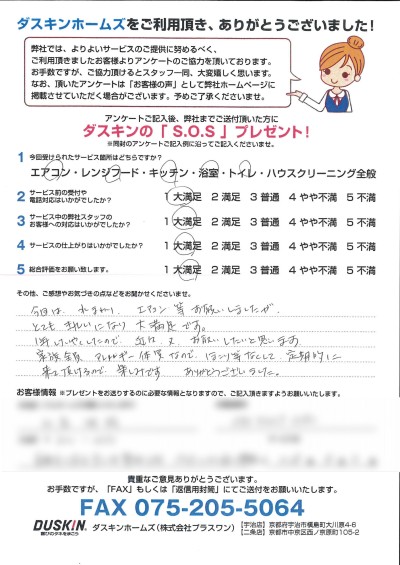 ダスキンホームズをご利用頂き、ありがとうございました！
弊社では、よりよいサービスのご提供に努めるべく、
ご利用頂きましたお客様よりアンケートのご協力を頂いております。
お手数ですが、ご協力頂けるとスタッフ一同、大変嬉しく思います。
なお、頂いたアンケートは「お客様の声」として弊社ホームページに
掲載させていただく場合がございます。予めご了承くださいませ。
アンケートご記入後、弊社までご送付頂いた方に
ダスキンの「S.O.S」プレゼント！
※同封のアンケートご記入例に沿ってご記入くださいませ。
1 今回受けられたサービス箇所はどちらですか？
エアコン・レンジフード・キッチン・浴室・トイレ・ハウスクリーニング全般
2 サービス前の受付や
電話対応はいかがでしたか？ 1 大満足 2 満足 3 普通 4 やや不満 5 不満
3 サービス中の弊社スタッフの
お客様への対応はいかがでしたか？ 1 大満足 2 満足 3 普通 4 やや不満 5 不満
4 サービスの仕上がりはいかがでしたか？ 1 大満足 2 満足 3 普通 4 やや不満 5 不満
5 総合評価をお願い致します。 1 大満足 2 満足 3 普通 4 やや不満 5 不満
その他、ご感想やお気づきの点などをお聞かせくださいませ。
今回は、水まわり、エアコン等お願いしましたが、
とてもきれいになり大満足です。
お願いしたいと思います。
家族全員 アレルギー体質なので、ほこり等なくして、定期的に
来て頂けるので、楽しみです。ありがとうございました。
お客様情報 ※プレゼントをお送りするのに必要な情報となりますので、ご記入頂きますようお願いいたします。
貴重なご意見ありがとうございます。
お手数ですが、「FAX」もしくは「返信用封筒」にてご送付をお願いいたします。
FAX 075-205-5064
DUSKIN 喜びのタネをまこう ダスキンホームズ（株式会社プラスワン）
【宇治店】京都府宇治市槇島町大川原4-6
【二条店】京都市中京区西ノ京原町105-2